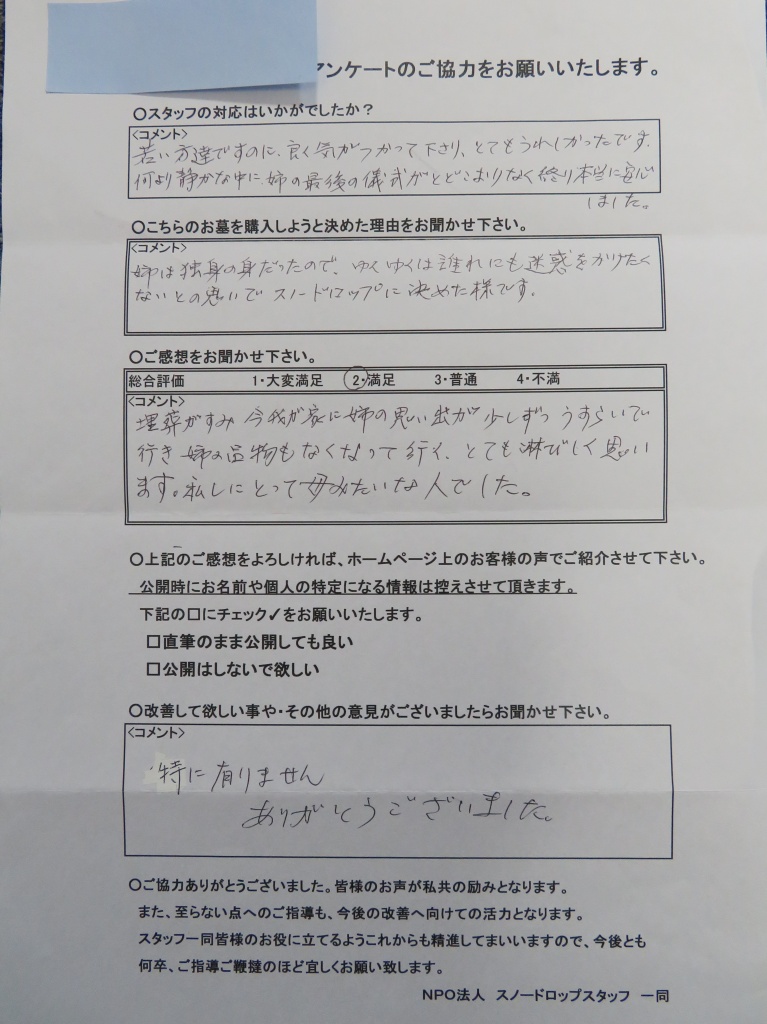 アンケートのご協力をお願いいたします。
〇スタッフの対応はいかがでしたか？
<コメント>
若い方達ですのに、良く気がつかって下さり、とてもうれしかったです。
何より静かな中に姉の最後の儀式がとどこおりなく終り本当に安心
しました。
〇こちらのお墓を購入しようと決めた理由をお聞かせ下さい。
<コメント>
姉は独身の身だったので、ゆくゆくは誰れにも迷惑をかけたく
ないとの思いでスノードロップに決めた様です。
〇ご感想をお聞かせ下さい。
総合評価 1・大変満足 2・満足 3・普通 4・不満
<コメント>
埋葬がすみ今我が家に姉の思い出が少しずつうすらいで
行き姉の品物もなくなって行く、とても淋びしく思い
ます。私しにとって母みたいな人でした。
〇上記のご感想をよろしければ、ホームページ上のお客様の声でご紹介させて下さい。
公開時にお名前や個人の特定になる情報は控えさせて頂きます。
下記の□にチェック✓をお願いいたします。
□直筆のまま公開しても良い
□公開はしないで欲しい
〇改善して欲しい事や・その他の意見がございましたらお聞かせ下さい。
<コメント>
特に有りません
ありがとうございました。
〇ご協力ありがとうございました。皆様のお声が私共の励みとなります。
また、至らない点へのご指導も、今後の改善へ向けての活力となります。
スタッフ一同皆様のお役に立てるようこれからも精進してまいいますので、今後とも
何卒、ご指導ご鞭撻のほど宜しくお願い致します。
NPO法人 スノードロップスタッフ 一同